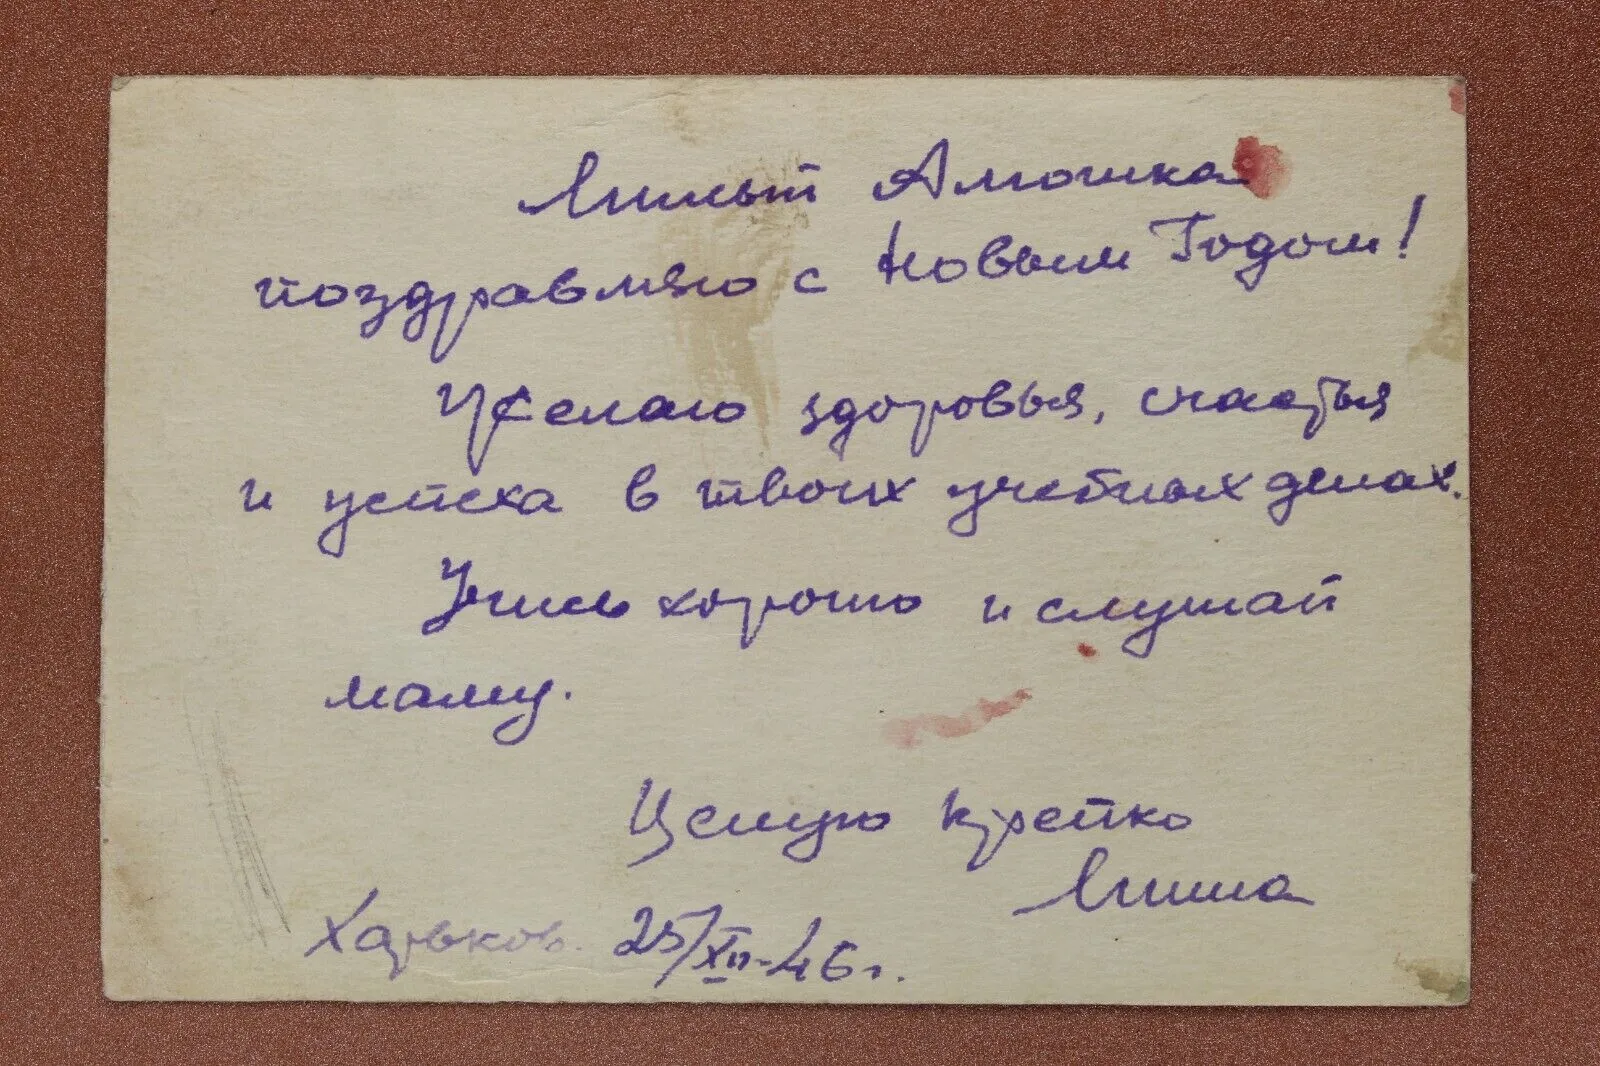 Милый Алюшка
поздравляю с Новым Годом!
Желаю здоровья, счастья
и успеха в твоих учебных делах.
Учись хорошо и слушай
маму.
Целую крепко
Миша
Харьков. 25/XII-46г.